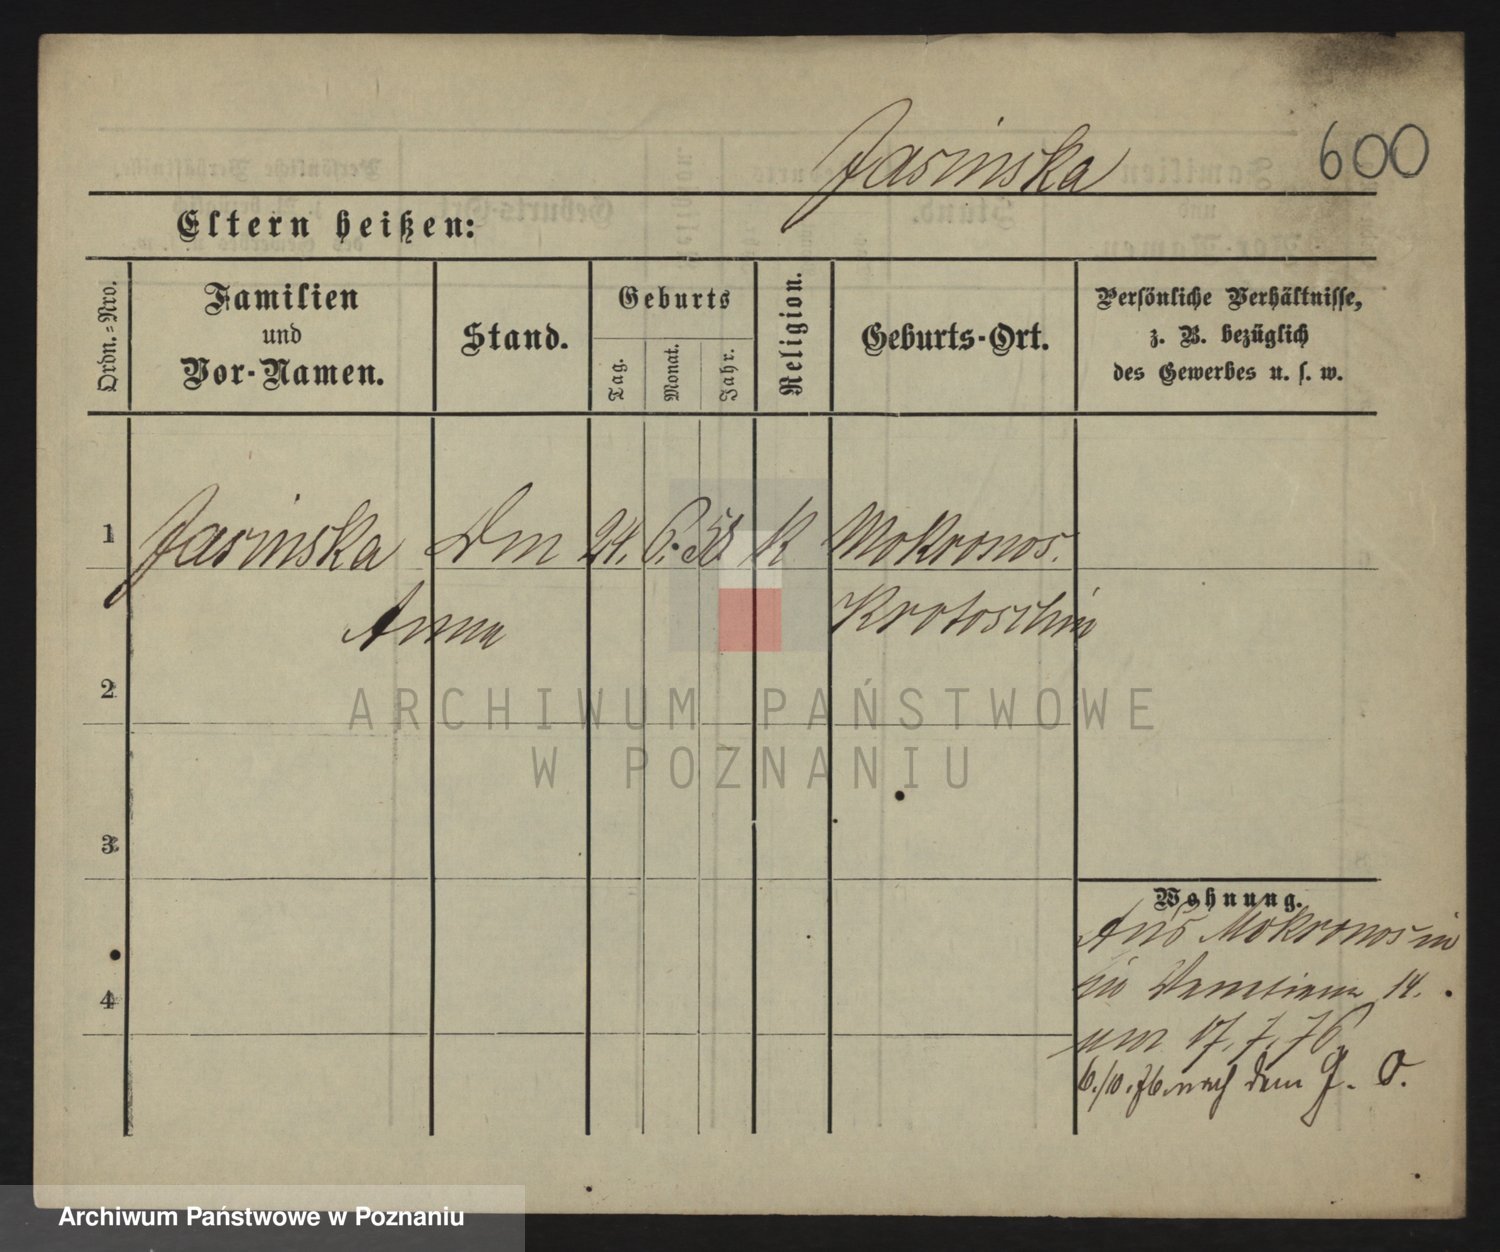 Jasinska 600
Eltern heißen:
Ordn.=Nro.
Familien
und
Vor-Namen.
Stand.
Geburts
Tag.
Monat.
Jahr.
Religion.
Geburts-Ort.
Persönliche Verhältnisse,
z. B. bezüglich
des Gewerbes u. s. w.
1 Jasinska Dm 24. 6. 58 K Mokronos.
Anna Krotoschin
2
3
4
Wohnung.
Aus Mokronos in
14.
17. 7. 76
6./10. 76. nach dem G. O.
ARCHIWUM PAŃSTWOWE
W POZNANIU
Archiwum Państwowe w Poznaniu